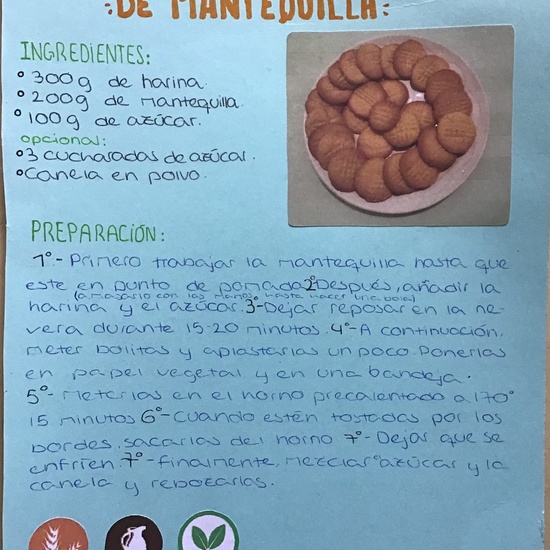 DE MANTEQUILLA:
INGREDIENTES:
300g de harina.
200g de mantequilla
100g de azúcar.
opcional:
3 cucharadas de azúcar.
Canela en polvo.
PREPARACIÓN:
1º- Primero trabajar la mantequilla hasta que
este en punto de pomada 2º Después, añadir la
(amasarlo con las manos hasta hacer una bola)
harina y el azúcar. 3º- Dejar reposar en la ne-
vera durante 15-20 minutos. 4º- A continuación,
meter bolitas y aplastarlas un poco. Ponerlas
en papel vegetal y en una bandeja.
5º- meterlas en el horno precalentado a 170º
15 minutos 6º- Cuando estén tostadas por los
bordes, sacarlas del horno 7º- Dejar que se
enfríen. 7º- finalmente, mezclar azúcar y la
canela y rebozarlas.